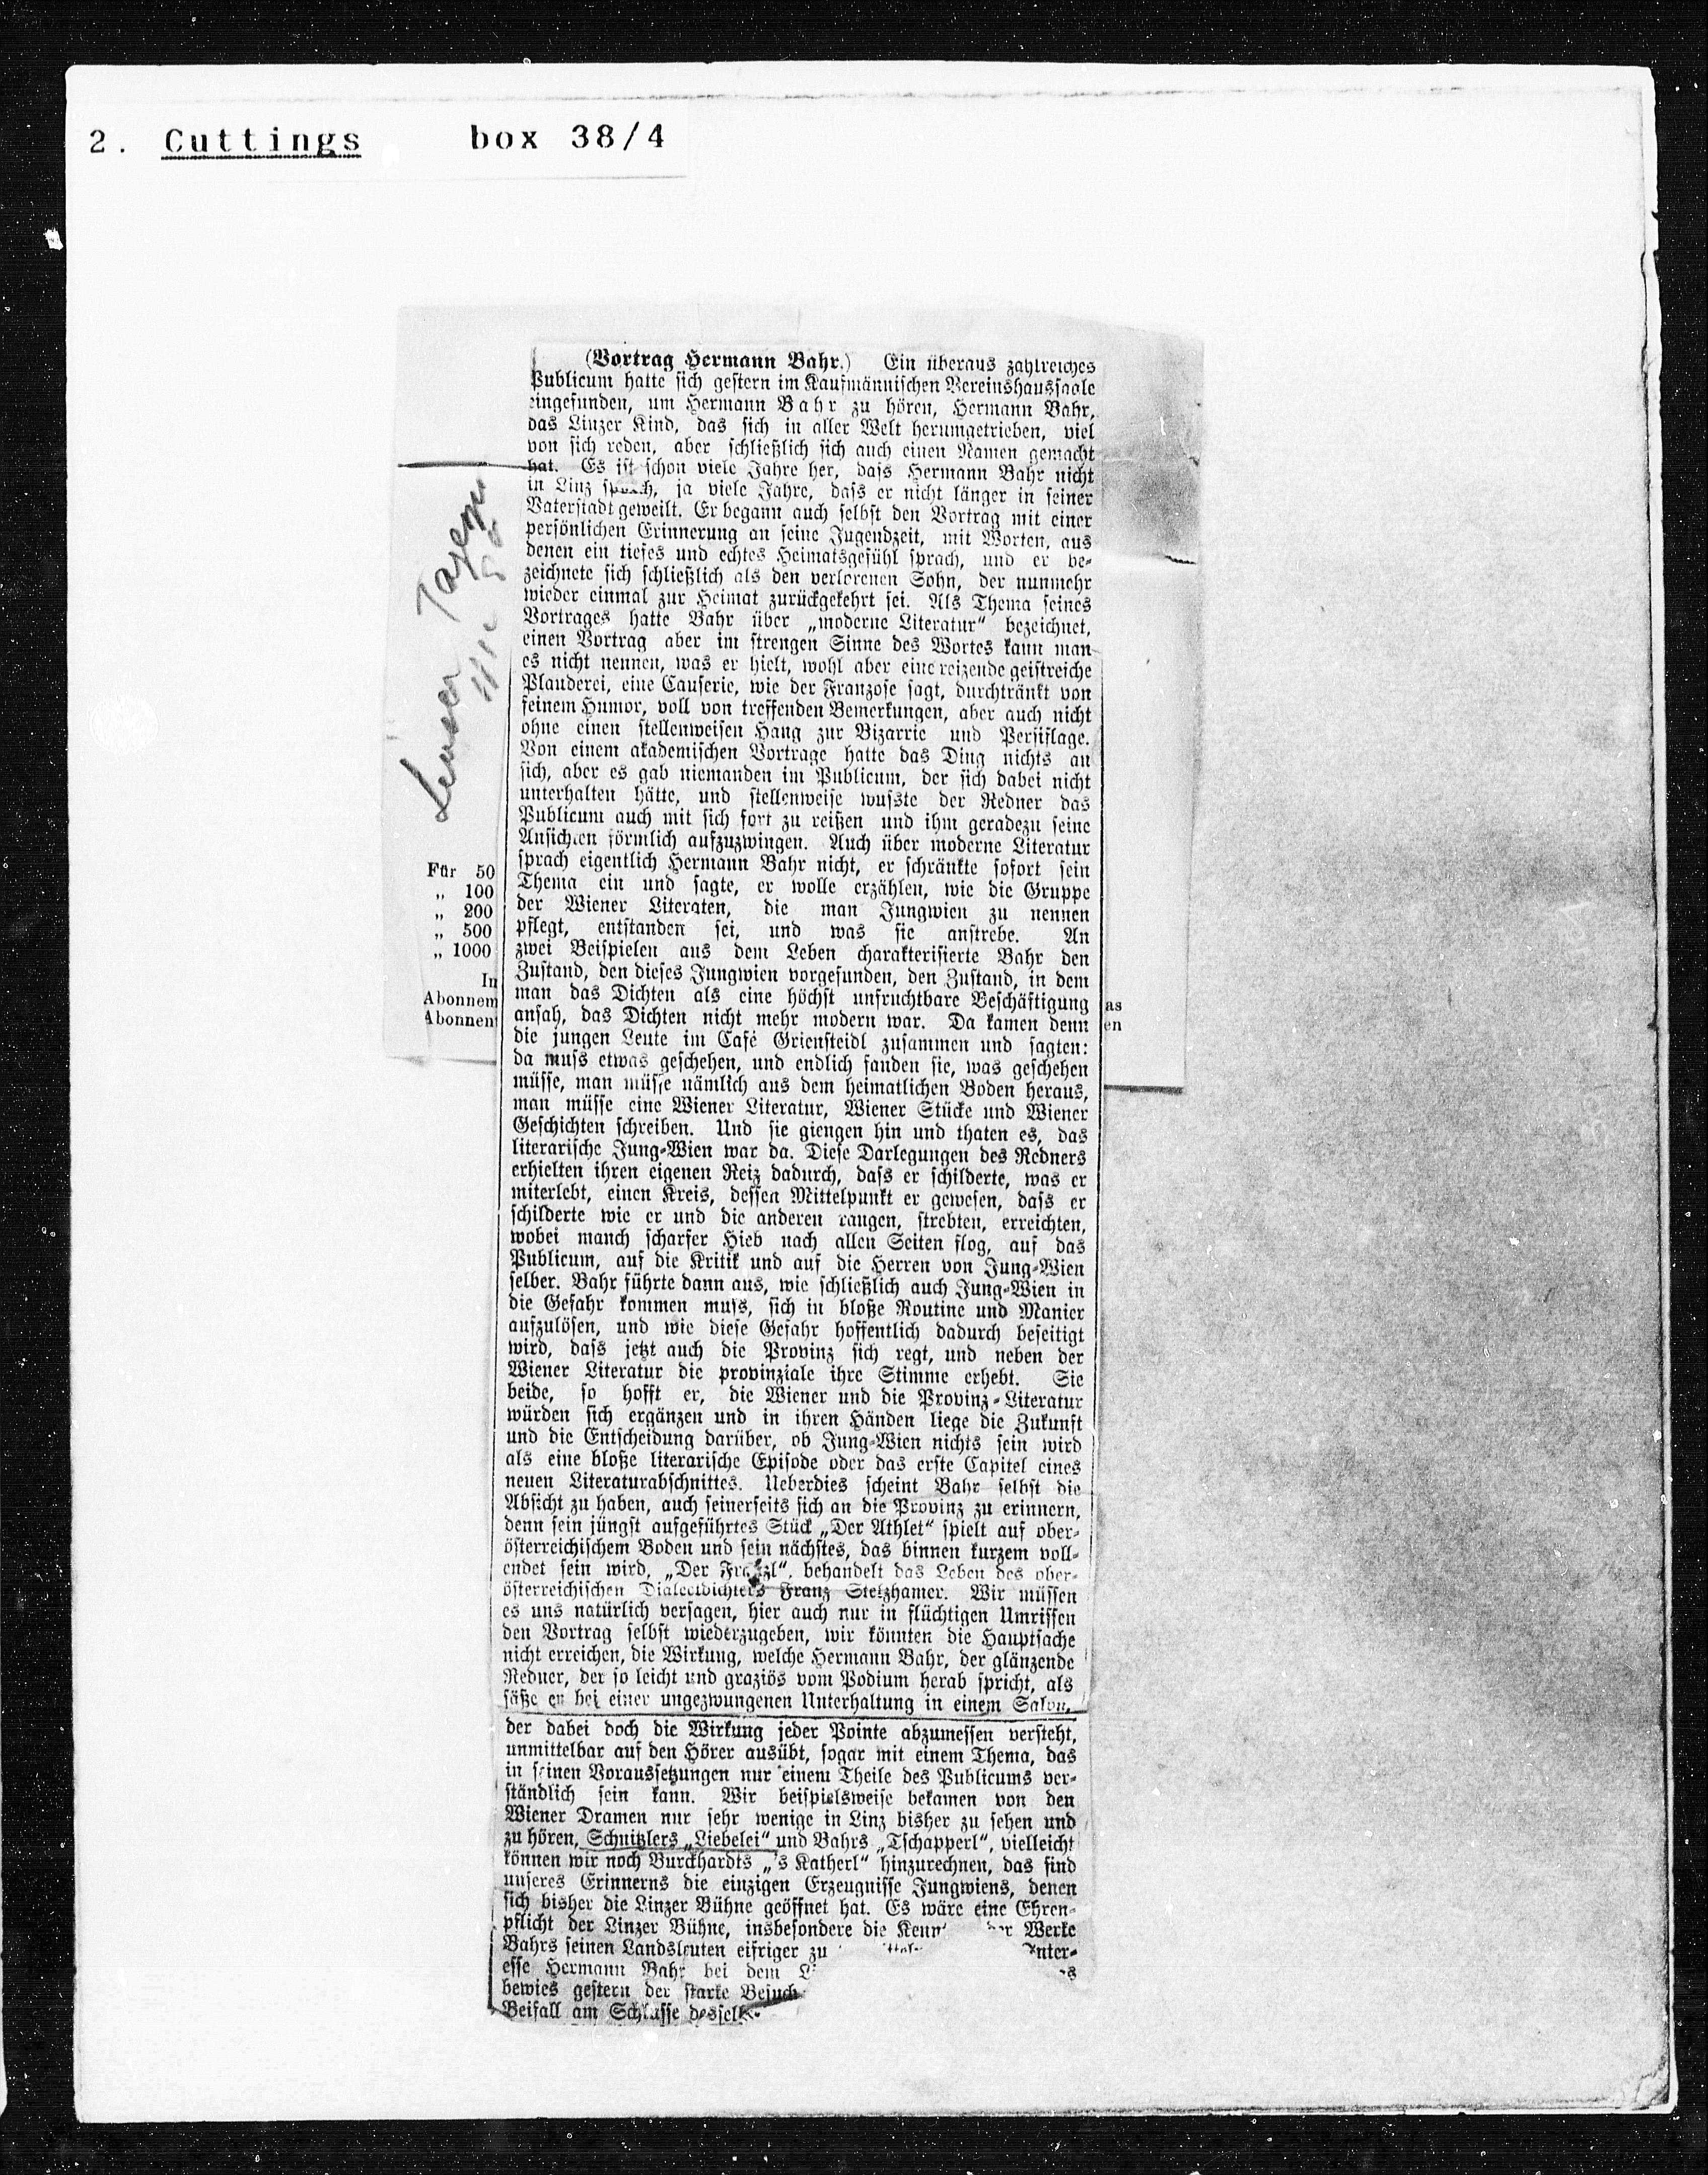 2. Cuttings box 38/4
(Vortrag Hermann Bahr.) Ein überaus zahlreiches
Publicum hatte sich gestern im Kaufmännischen Vereinshaussaale
eingefunden, um Hermann Bahr zu hören, Hermann Bahr,
das Linzer Kind, das sich in aller Welt herumgetrieben, viel
von sich reden, aber schließlich sich auch einen Namen gemacht
hat. Es ist schon viele Jahre her, dass Hermann Bahr nicht
in Linz sprach, ja viele Jahre, dass er nicht länger in seiner
Vaterstadt geweilt. Er begann auch selbst den Vortrag mit einer
persönlichen Erinnerung an seine Jugendzeit, mit Worten, aus
denen ein tiefes und echtes Heimatsgefühl sprach, und er be-
zeichnete sich schließlich als den verlorenen Sohn, der nunmehr
wieder einmal zur Heimat zurückgekehrt sei. Als Thema seines
Vortrages hatte Bahr über „moderne Literatur“ bezeichnet,
einen Vortrag aber im strengen Sinne des Wortes kann man
es nicht nennen, was er hielt, wohl aber eine reizende geistreiche
Plauderei, eine Causerie, wie der Franzose sagt, durchtränkt von
feinem Humor, voll von treffenden Bemerkungen, aber auch nicht
ohne einen stellenweisen Hang zur Bizarrie und Persiflage.
Von einem akademischen Vortrage hatte das Ding nichts an
sich, aber es gab niemanden im Publicum, der sich dabei nicht
unterhalten hätte, und stellenweise wusste der Redner das
Publicum auch mit sich fort zu reißen und ihm geradezu seine
Ansichten förmlich aufzuzwingen. Auch über moderne Literatur
sprach eigentlich Hermann Bahr nicht, er schränkte sofort sein
Thema ein und sagte, er wolle erzählen, wie die Gruppe
der Wiener Literaten, die man Jungwien zu nennen
pflegt, entstanden sei, und was sie anstrebe. An
zwei Beispielen aus dem Leben charakterisierte Bahr den
Zustand, den dieses Jungwien vorgefunden, den Zustand, in dem
man das Dichten als eine höchst unfruchtbare Beschäftigung
ansah, das Dichten nicht mehr modern war. Da kamen denn
die jungen Leute im Café Griensteidl zusammen und sagten:
da muss etwas geschehen, und endlich fanden sie, was geschehen
müsse, man müsse nämlich aus dem heimatlichen Boden heraus,
man müsse eine Wiener Literatur, Wiener Stücke und Wiener
Geschichten schreiben. Und sie giengen hin und thaten es, das
literarische Jung-Wien war da. Diese Darlegungen des Redners
erhielten ihren eigenen Reiz dadurch, dass er schilderte, was er
miterlebt, einen Kreis, dessen Mittelpunkt er gewesen, dass er
schilderte wie er und die anderen rangen, strebten, erreichten,
wobei manch scharfer Hieb nach allen Seiten flog, auf das
Publicum, auf die Kritik und auf die Herren von Jung-Wien
selber. Bahr führte dann aus, wie schließlich auch Jung-Wien in
die Gefahr kommen muss, sich in bloße Routine und Manier
aufzulösen, und wie diese Gefahr hoffentlich dadurch beseitigt
wird, dass jetzt auch die Provinz sich regt, und neben der
Wiener Literatur die provinziale ihre Stimme erhebt. Sie
beide, so hofft er, die Wiener und die Provinz-Literatur
würden sich ergänzen und in ihren Händen liege die Zukunft
und die Entscheidung darüber, ob Jung-Wien nichts sein wird
als eine bloße literarische Episode oder das erste Capitel eines
neuen Literaturabschnittes. Ueberdies scheint Bahr selbst die
Absicht zu haben, auch seinerseits sich an die Provinz zu erinnern,
denn sein jüngst aufgeführtes Stück „Der Athlet“ spielt auf ober-
österreichischem Boden und sein nächstes, das binnen kurzem voll-
endet sein wird, „Der Franzl“, behandelt das Leben des ober-
österreichischen Dialectdichters Franz Stelzhamer. Wir müssen
es uns natürlich versagen, hier auch nur in flüchtigen Umrissen
den Vortrag selbst wiederzugeben, wir könnten die Hauptsache
nicht erreichen, die Wirkung, welche Hermann Bahr, der glänzende
Redner, der so leicht und graziös vom Podium herab spricht, als
säße er bei einer ungezwungenen Unterhaltung in einem Salon,
der dabei doch die Wirkung jeder Pointe abzumessen versteht,
unmittelbar auf den Hörer ausübt, sogar mit einem Thema, das
in seinen Voraussetzungen nur einem Theile des Publicums ver-
ständlich sein kann. Wir beispielsweise bekamen von den
Wiener Dramen nur sehr wenige in Linz bisher zu sehen und
zu hören, Schnitzlers „Liebelei“ und Bahrs „Tschapperl“, vielleicht
können wir noch Burckhardts „'s Katherl“ hinzurechnen, das sind
unseres Erinnerns die einzigen Erzeugnisse Jungwiens, denen
sich bisher die Linzer Bühne geöffnet hat. Es wäre eine Ehren-
pflicht der Linzer Bühne, insbesondere die Kenn der Werke
Bahrs seinen Landsleuten eifriger zu nter-
esse Hermann Bahr bei dem
bewies gestern der starke Besuch
Beifall am Schlusse
Für 50
„ 100
„ 200
„ 500
„ 1000
In
Abonnem
Abonnent
as
en